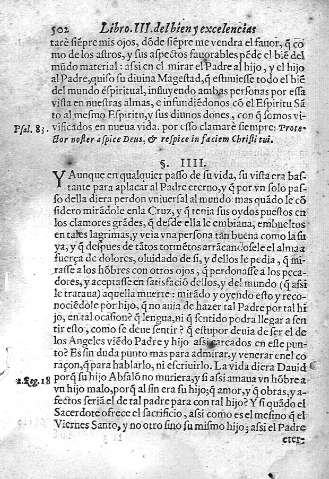 502 Libro. III. del bien y excelencias
tarè siẽpre mis ojos, dõde siẽpre me vendra el fauor, q̃ co
mo de los astros, y sus aspectos fauorables pẽde el biẽ del
mũdo material: assi en el mirar el Padre al hijo, y el hijo
al Padre, quiso su diuina Magestad, q̃ estuuiesse todo el biẽ
del mundo espiritual, influyendo ambas personas por essa
vista en nuestras almas, e infundiẽdonos cõ el Espiritu Sã
to al mesmo Espiritu, y sus diuinos dones, con q̃ somos vi
Psal. 83. uificados en nueua vida. por esso clamarè siempre: Prote-
ctor noster aspice Deus, & respice in faciem Christi tui.
§. IIII.
Y Aunque en qualquier passo de su vida, su vista era bas-
tante para aplacar al Padre eterno, y q̃ por vn solo pas-
so della diera perdon vniuersal al mundo mas quãdo le cõ
sidero mirãdole en la Cruz, y q̃ tenia sus oydos puestos en
los clamores grãdes, q̃ desde ella le embiaua, embueltos
en tales lagrimas, y veia vna persona tan buena como la su
ya, y q̃ despues de tãtos tormẽtos arrãcandosele el alma a
fuerça de dolores, oluidado de si, y dellos le pedia, q̃ mi-
rasse a los hõbres con otros ojos, q̃ perdonasse a los peca-
dores, y aceptasse en satisfaciõ dellos, y del mundo (q̃ assi
le trataua) aquella muerte: mirãdo y oyendo esto y reco-
nociẽdole por hijo, q̃ no auia de hazer tal Padre por tal hi
jo, en tal ocasion? q̃ lengua, ni q̃ sentido podra llegar a sen
tir esto, como se deue sentir? q̃ estupor deuia de ser el de
los Angeles viẽdo Padre y hijo assi arcados en este pun-
to? Es sin duda punto mas para admirar, y venerar en el co
raçon, q̃ para hablarlo, ni escriuirlo. La vida diera Dauid
2. Reg. 18 porq̃ su hijo Absalõ no muriera, y si assi amaua vn hõbre a
vn hijo malo, porq̃ al fin era su hijo; q̃ amor, y q̃ obras, y a-
fectos seriã el de tal padre para con tal hijo? Y si quãdo el
Sacerdote ofrece el sacrificio, assi como es el mesmo q̃ el
Viernes Santo, y no otro sino su mismo hijo; assi el Padre
eter-